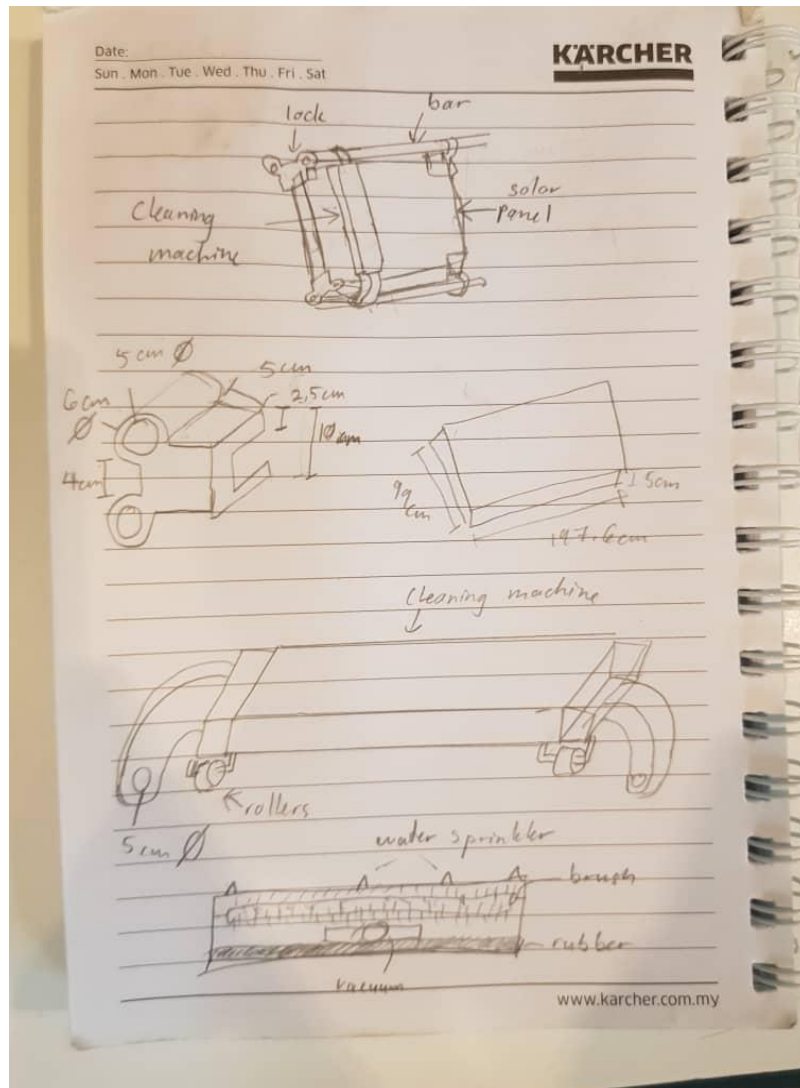 Date:
KÄRCHER
Sun . Mon . Tue . Wed . Thu . Fri . Sat
bar
lock
solar
panel
Cleaning
machine
5 cm Ø
5cm
6cm
Ø
2,5cm
10 cm
4cm
99
cm
5cm
197.6cm
Cleaning machine
rollers
5 cm Ø
water sprinkler
brush
rubber
vacuum
www.karcher.com.my